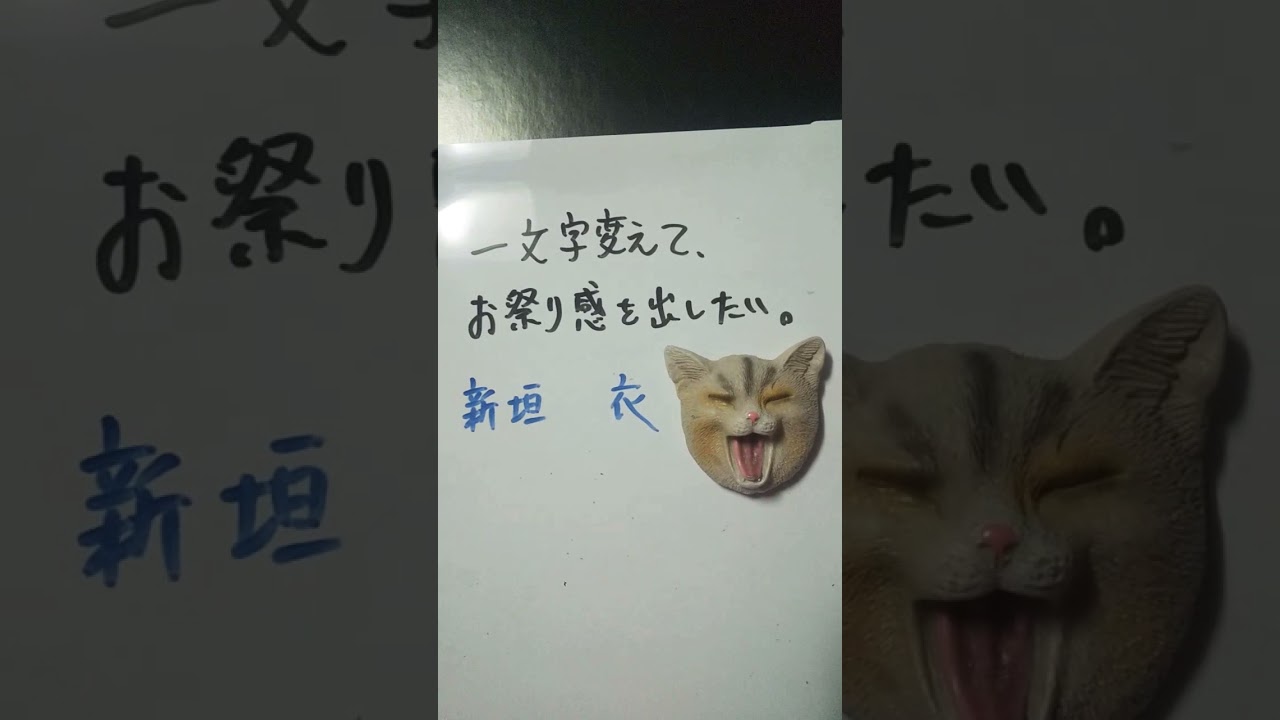 一文字変えて、
お祭り感を出したい。
新垣　衣